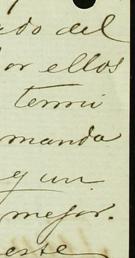 ado del
or ellos
termi
manda
y un
mejor.
este